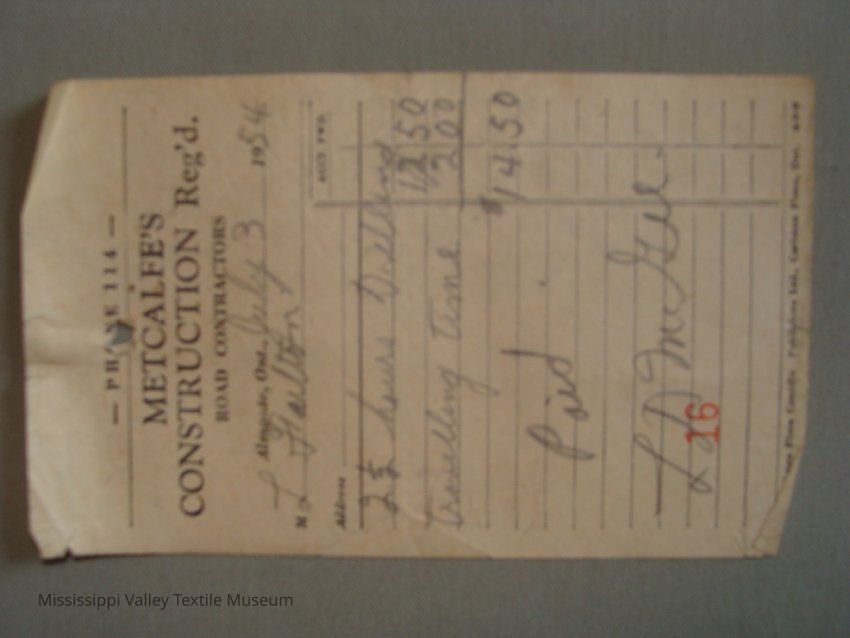 — PHONE 114 —
METCALFE'S
CONSTRUCTION Reg'd.
ROAD CONTRACTORS
Almonte, Ont., July 3 1954
M L Fulton
Address
ACCT FWD.
2½ hours Drilling 12 50
travelling time 2 00
$14.50
Paid
L D McGee.
16
Mississippi Valley Textile Museum